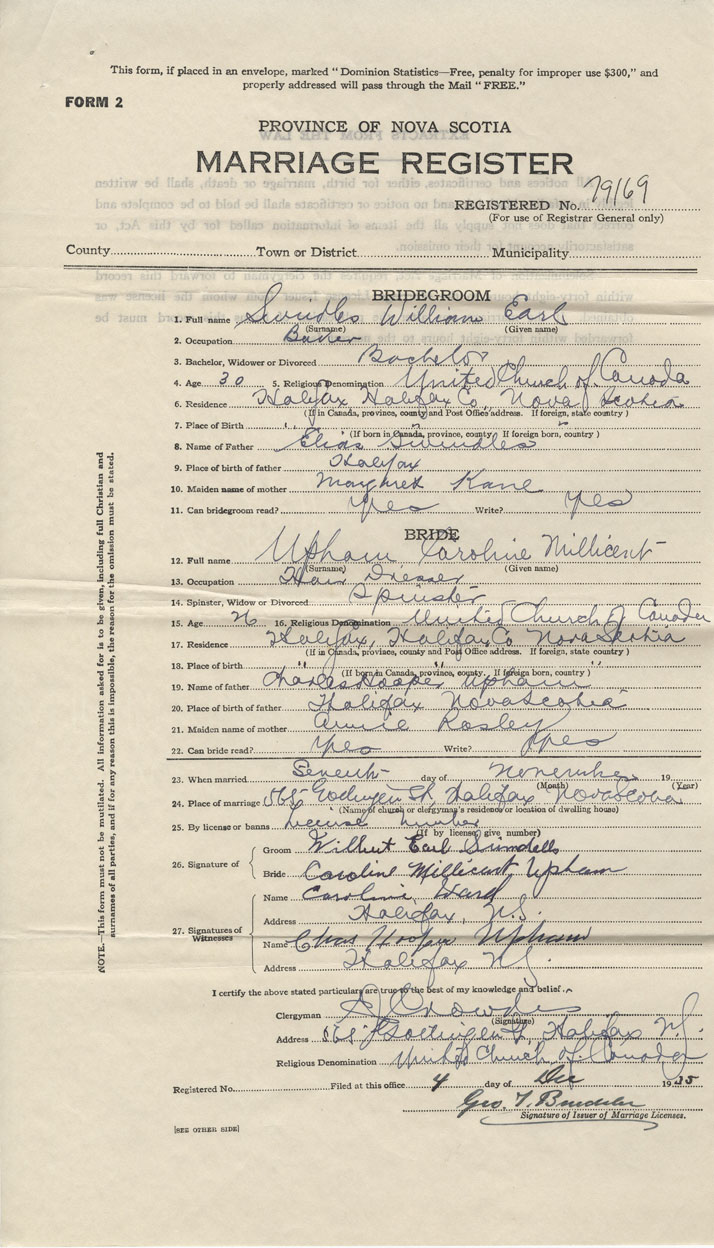 This form, if placed in an envelope, marked “Dominion Statistics—Free, penalty for improper use $300,” and
properly addressed will pass through the Mail “FREE.”
FORM 2
PROVINCE OF NOVA SCOTIA
MARRIAGE REGISTER
REGISTERED No. 79169
(For use of Registrar General only)
County Town or District Municipality
BRIDEGROOM
1. Full name Swindles William Earl
(Surname) (Given name)
2. Occupation Baker
3. Bachelor, Widower or Divorced Bachelor
4. Age 30 5. Religious Denomination United Church of Canada
6. Residence Halifax Halifax Co, Nova Scotia
(If in Canada, province, county and Post Office address. If foreign, state country)
7. Place of Birth " " "
(If born in Canada, province, county. If foreign born, country)
8. Name of Father Elias Swindles
9. Place of birth of father Halifax
10. Maiden name of mother Margret Kane
11. Can bridegroom read? Yes Write? Yes
BRIDE
12. Full name Upham Caroline Millicent
(Surname) (Given name)
13. Occupation Hair Dresser
14. Spinster, Widow or Divorced Spinster
15. Age 26 16. Religious Denomination United Church of Canada
17. Residence Halifax, Halifax Co Nova Scotia
(If in Canada, province, county and Post Office address. If foreign, state country)
18. Place of birth " " "
(If born in Canada, province, county. If foreign born, country)
19. Name of father Charles Hooper Upham
20. Place of birth of father Halifax Nova Scotia
21. Maiden name of mother Annie Rosley
22. Can bride read? Yes Write? Yes
23. When married Seventh day of November 19
(Month) (Year)
24. Place of marriage 568 Gottingen St, Halifax Nova Scotia
(Name of church or clergyman's residence or location of dwelling house)
25. By license or banns license number
(If by license, give number)
26. Signature of
Groom Wilbut Earl Swindells
Bride Caroline Millicent Upham
27. Signatures of Witnesses
Name Caroline Ward
Address Halifax, N.S.
Name Chas Hooper Upham
Address Halifax N.S.
I certify the above stated particulars are true to the best of my knowledge and belief.
Clergyman
(Signature)
Address 568 Gottingen St, Halifax N.S.
Religious Denomination United Church of Canada
Registered No. Filed at this office 4 day of Dec 1935
Geo. T.
Signature of Issuer of Marriage Licenses.
[SEE OTHER SIDE]
NOTE.—This form must not be mutilated. All information asked for is to be given, including full Christian and
surnames of all parties, and if for any reason this is impossible, the reason for the omission must be stated.